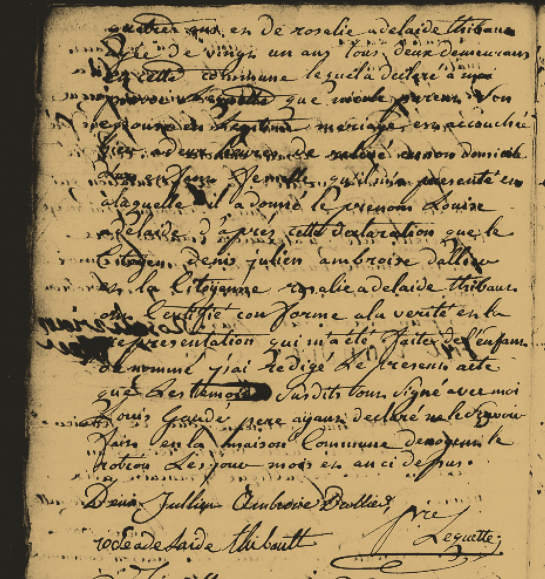 quatre ans, et de rosalie adelaide thibaut
agée de vingt un ans tous deux demeurans
en cette commune lequel a declaré a moi
pierre Lequette que nicole parent son
epouse en Legitime mariage, est accouchée
hier a deux heures de relevé en son domicile
d'un enfant femelle qu'il m'a presenté et
a laquelle il a donné le prenom Louise
adelaide, d'après cette declaration que le
Citoyen denis julien ambroise dallier
et la Citoyenne rosalie adelaide thibaut
ont Certifié conforme a la verité et la
representation qui m'a été faite de l'enfant
denommé j'ai redigé Le present acte
que Les temoins susdits ont signé avec moi
Louis pere ayant declaré ne le sçavoir
fait en la maison Commune de nogent le
rotrou Les jour mois et an ci depus.
Denis Jullien Ambroise Dallier
rose adelaide thibault
pre
Lequette